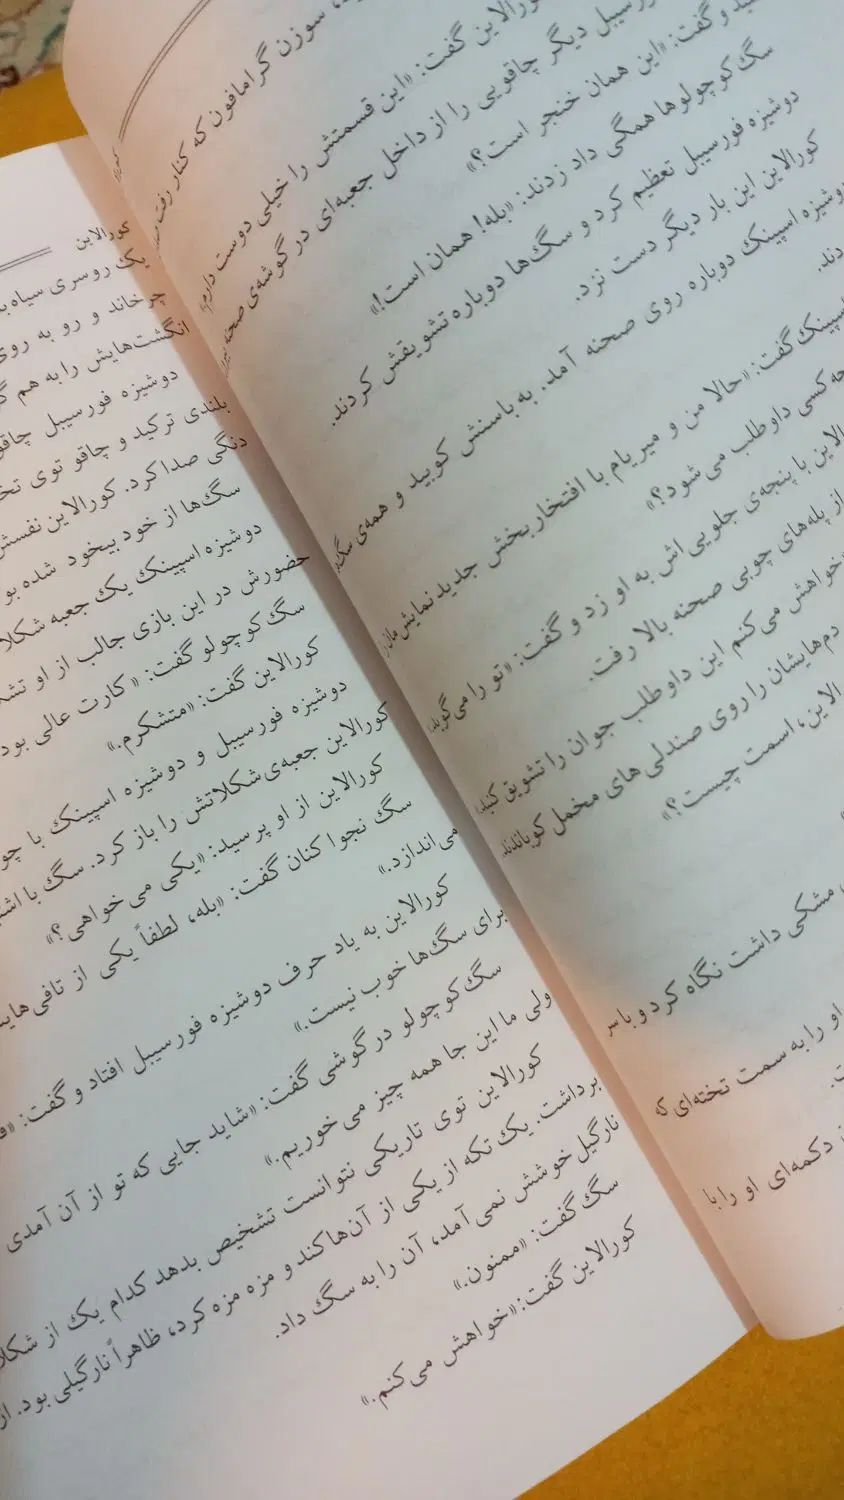 سوزن گرامافون که کنار رفت
کورالاین گفت: «این قسمتش را خیلی دوست دارم.»
دیگر چاقویی را از داخل جعبه‌ای در گوشه‌ی صحنه
و گفت: «این همان خنجر است؟»
سگ کوچولوها همگی داد زدند: «بله! همان است!»
دوشیزه فورسیبل تعظیم کرد و سگ‌ها دوباره تشویقش کردند.
کورالاین این بار دیگر دست نزد.
دوشیزه اسپینک دوباره روی صحنه آمد. به باسنش کوبید و همه‌ی
اسپینک گفت: «حالا من و میریام با افتخار بخش جدید نمایش‌مان
چه کسی داوطلب می‌شود؟»
با پنجه‌ی جلویی اش به او زد و گفت: «تو را می‌گوید.»
از پله‌های چوبی صحنه بالا رفت.
خواهش می‌کنم این داوطلب جوان را تشویق کنید.
دم‌هایشان را روی صندلی‌های مخمل کوباندند.
اسمت چیست؟»
مشکی داشت نگاه کرد و با سر
او را به سمت تخته‌ای که
دکمه‌ای او را با
کورالاین
یک روسری سیاه
چرخاند و رو به روی
انگشت‌هایش را به هم
دوشیزه فورسیبل
بلندی ترکید و چاقو توی
دنگی صدا کرد. کورالاین
سگ‌ها از خود بیخود شده
دوشیزه اسپینک یک جعبه
حضورش در این بازی جالب از او
سگ کوچولو گفت: «کارت عالی
کورالاین گفت: «متشکرم.»
دوشیزه فورسیبل و دوشیزه اسپینک با
کورالاین جعبه‌ی شکلاتش را باز کرد. سگ با
کورالاین از او پرسید: «یکی می‌خواهی؟»
سگ نجوا کنان گفت: «بله، لطفاً یکی از
می‌اندازد.»
کورالاین به یاد حرف دوشیزه فورسیبل افتاد و گفت:
برای سگ‌ها خوب نیست.»
سگ کوچولو در گوشی گفت: «شاید جایی که تو از آن آمدی
ولی ما این جا همه چیز می‌خوریم.»
کورالاین توی تاریکی نتوانست تشخیص بدهد کدام یک از
برداشت. یک تکه از یکی از آن‌ها کند و مزه مزه کرد، ظاهراً نارگیلی بود.
نارگیل خوشش نمی‌آمد، آن را به سگ داد.
سگ گفت: «ممنون.»
کورالاین گفت: «خواهش می‌کنم.»